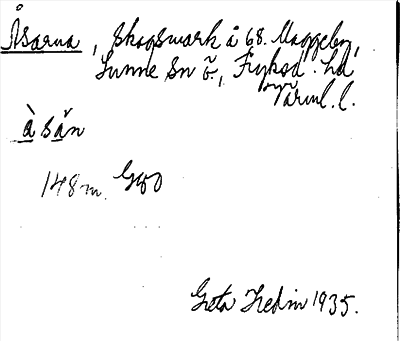 Åsarna, skogsmark å 68. Maggeby,
Sunne sn ö., Fryksd. hd
Värml. l.
à sǎn
148 m. GSO
Greta Hedin 1935.